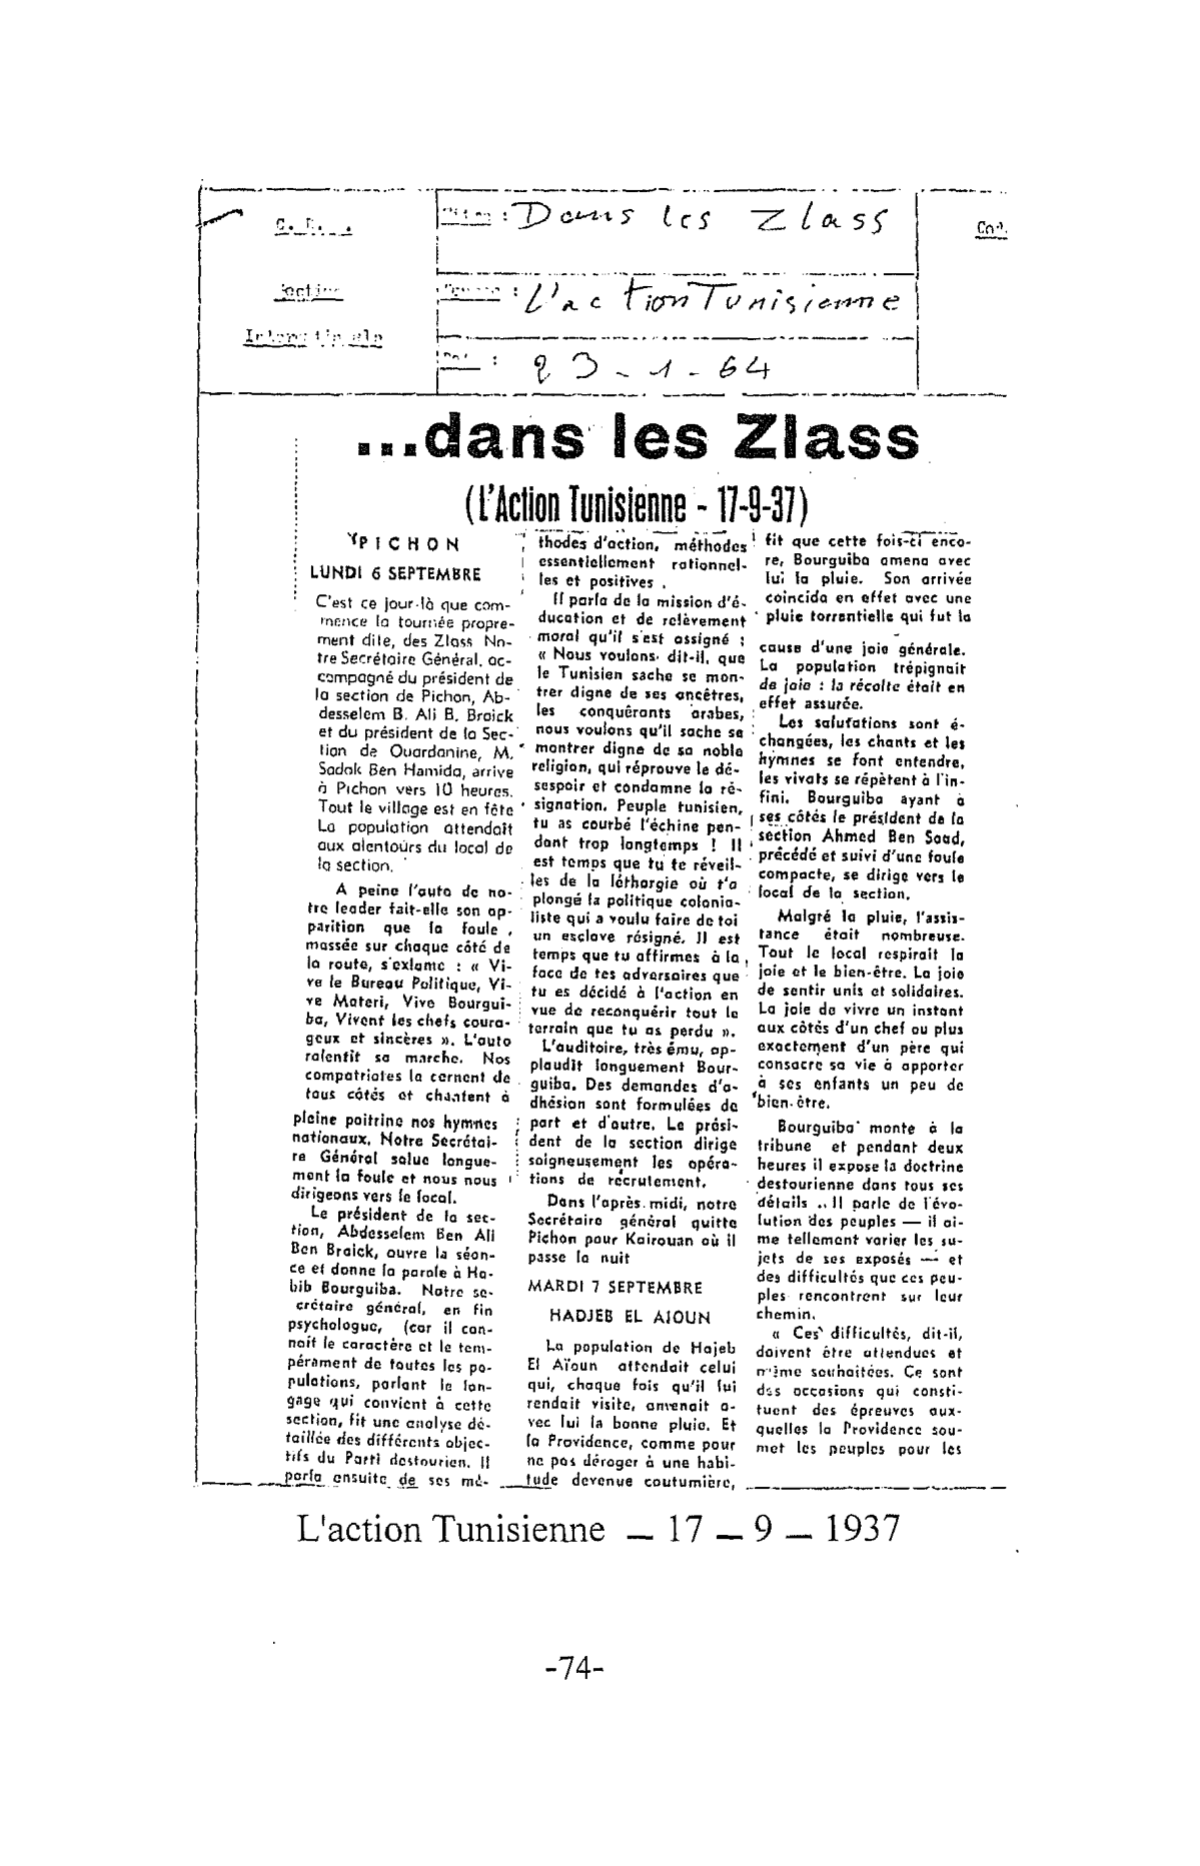 Dans les Zlass
L'action Tunisienne
23-1-64
...dans les Zlass
(L'Action Tunisienne - 17-9-37)
PICHON
LUNDI 6 SEPTEMBRE
C'est ce jour-là que com-
mence la tournée propre-
ment dite, des Zlass No-
tre Secrétaire Général, ac-
compagné du président de
la section de Pichon, Ab-
desselem B. Ali B. Braick
et du président de la Sec-
tion de Ouardanine, M.
Sadok Ben Hamida, arrive
à Pichon vers 10 heures.
Tout le village est en fête
La population attendait
aux alentours du local de
la section.
A peine l'auto de no-
tre leader fait-elle son ap-
parition que la foule,
massée sur chaque côté de
la route, s'exlame : « Vi-
ve le Bureau Politique, Vi-
ve Materi, Vive Bourgui-
ba, Vivent les chefs coura-
geux et sincères ». L'auto
ralentit sa marche. Nos
compatriotes la cernent de
tous côtés et chantent à
pleine poitrine nos hymnes
nationaux. Notre Secrétai-
re Général salue longue-
ment la foule et nous nous
dirigeons vers le local.
Le président de la sec-
tion, Abdesselem Ben Ali
Ben Braick, ouvre la séan-
ce et donne la parole à Ha-
bib Bourguiba. Notre se-
crétaire général, en fin
psychologue, (car il con-
nait le caractère et le tem-
pérament de toutes les po-
pulations, parlant le lan-
gage qui convient à cette
section, fit une analyse dé-
taillée des différents objec-
tifs du Parti destourien. Il
parla ensuite de ses mé-
thodes d'action, méthodes
essentiellement rationnel-
les et positives.
Il parla de la mission d'é-
ducation et de relèvement
moral qu'il s'est assigné ;
« Nous voulons, dit-il, que
le Tunisien sache se mon-
trer digne de ses ancêtres,
les conquérants arabes,
nous voulons qu'il sache se
montrer digne de sa noble
religion, qui réprouve le dé-
sespoir et condamne la ré-
signation. Peuple tunisien,
tu as courbé l'échine pen-
dant trop longtemps ! Il
est temps que tu te réveil-
les de la léthargie où t'a
plongé la politique colonia-
liste qui a voulu faire de toi
un esclave résigné. Il est
temps que tu affirmes à la
face de tes adversaires que
tu es décidé à l'action en
vue de reconquérir tout le
terrain que tu as perdu ».
L'auditoire, très ému, ap-
plaudit longuement Bour-
guiba. Des demandes d'a-
dhésion sont formulées de
part et d'autre. Le prési-
dent de la section dirige
soigneusement les opéra-
tions de recrutement.
Dans l'après midi, notre
Secrétaire général quitte
Pichon pour Kairouan où il
passe la nuit
MARDI 7 SEPTEMBRE
HADJEB EL AIOUN
La population de Hajeb
El Aïoun attendait celui
qui, chaque fois qu'il lui
rendait visite, amenait a-
vec lui la bonne pluie. Et
la Providence, comme pour
ne pas déroger à une habi-
tude devenue coutumière,
fit que cette fois-ci enco-
re, Bourguiba amena avec
lui la pluie. Son arrivée
coincida en effet avec une
pluie torrentielle qui fut la
cause d'une joie générale.
La population trépignait
de joie : la récolte était en
effet assurée.
Les salutations sont é-
changées, les chants et les
hymnes se font entendre,
les vivats se répètent à l'in-
fini. Bourguiba ayant à
ses côtés le président de la
section Ahmed Ben Saad,
précédé et suivi d'une foule
compacte, se dirige vers le
local de la section.
Malgré la pluie, l'assis-
tance était nombreuse.
Tout le local respirait la
joie et le bien-être. La joie
de sentir unis et solidaires.
La joie de vivre un instant
aux côtés d'un chef ou plus
exactement d'un père qui
consacre sa vie à apporter
à ses enfants un peu de
bien-être.
Bourguiba monte à la
tribune et pendant deux
heures il expose la doctrine
destourienne dans tous ses
détails .. Il parle de l'évo-
lution des peuples — il ai-
me tellement varier les su-
jets de ses exposés — et
des difficultés que ces peu-
ples rencontrent sur leur
chemin.
« Ces difficultés, dit-il,
doivent être attendues et
même souhaitées. Ce sont
des occasions qui consti-
tuent des épreuves aux-
quelles la Providence sou-
met les peuples pour les
L'action Tunisienne – 17 – 9 – 1937
-74-